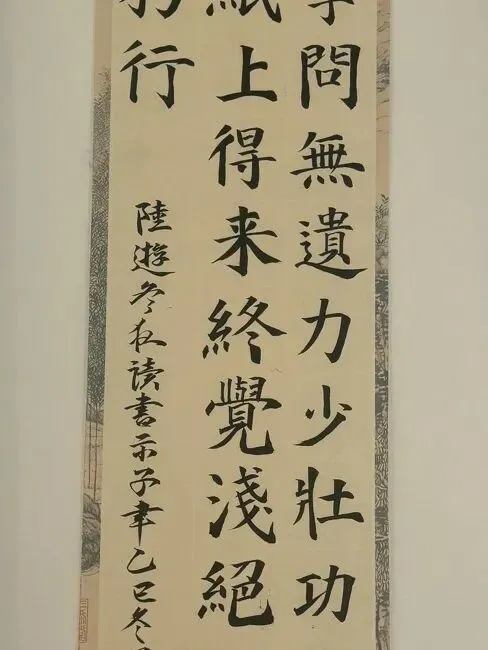 問無遺力少壯功
紙上得来終覺淺絕
行
陸遊冬夜讀書示子聿乙巳冬